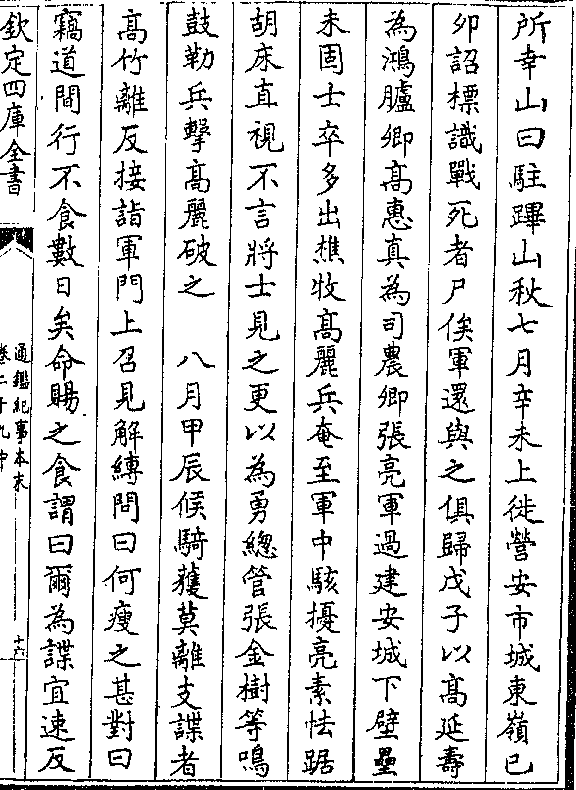 所幸山曰駐蹕山秋七月辛未上徙營安市城東嶺已
夘詔標識戰死者尸俟軍還與之俱歸戊子以髙延壽
為鴻臚卿髙惠真為司農卿張亮軍過建安城下壁壘
未固士卒多出樵牧髙麗兵奄至軍中駭擾亮素怯踞
胡床直視不言將士見之更以為勇總管張金樹等鳴
鼓勒兵擊髙麗破之　八月甲辰候騎獲莫離支諜者
髙竹離反接詣軍門上召見解縛問曰何瘦之甚對曰
竊道間行不食數日矣命賜之食謂曰爾為諜宜速反
欽定四庫全書
通鑑紀事本末
卷二十九中
十六